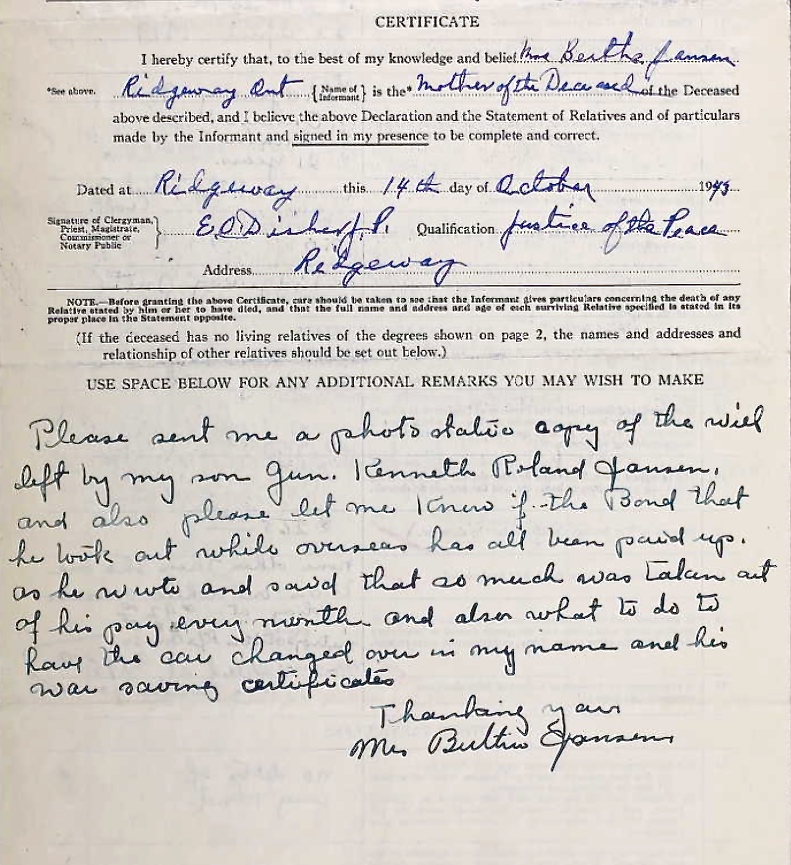 CERTIFICATE
I hereby certify that, to the best of my knowledge and belief Mrs Bertha Jansen
*See above. Ridgeway Ont {Name of Informant} is the* Mother of the Deceased of the Deceased
above described, and I believe the above Declaration and the Statement of Relatives and of particulars
made by the Informant and signed in my presence to be complete and correct.
Dated at Ridgeway this 14th day of October 1943
Signature of Clergyman, Priest, Magistrate, Commissioner or Notary Public} E.O. Disher J.P. Qualification Justice of the Peace
Address Ridgeway
NOTE.—Before granting the above Certificate, care should be taken to see that the Informant gives particulars concerning the death of any
Relative stated by him or her to have died, and that the full name and address and age of each surviving Relative specified is stated in its
proper place in the Statement opposite.
(If the deceased has no living relatives of the degrees shown on page 2, the names and addresses and
relationship of other relatives should be set out below.)
USE SPACE BELOW FOR ANY ADDITIONAL REMARKS YOU MAY WISH TO MAKE
Please sent me a photo static copy of the will
left by my son Gun. Kenneth Roland Jansen.
and also please let me know if the Bond that
he took out while overseas has all been paid up.
as he wrote and said that so much was taken out
of his pay every month and also what to do to
have the car changed over in my name and his
war saving certificates
Thanking you
Mrs Bertha Jansen